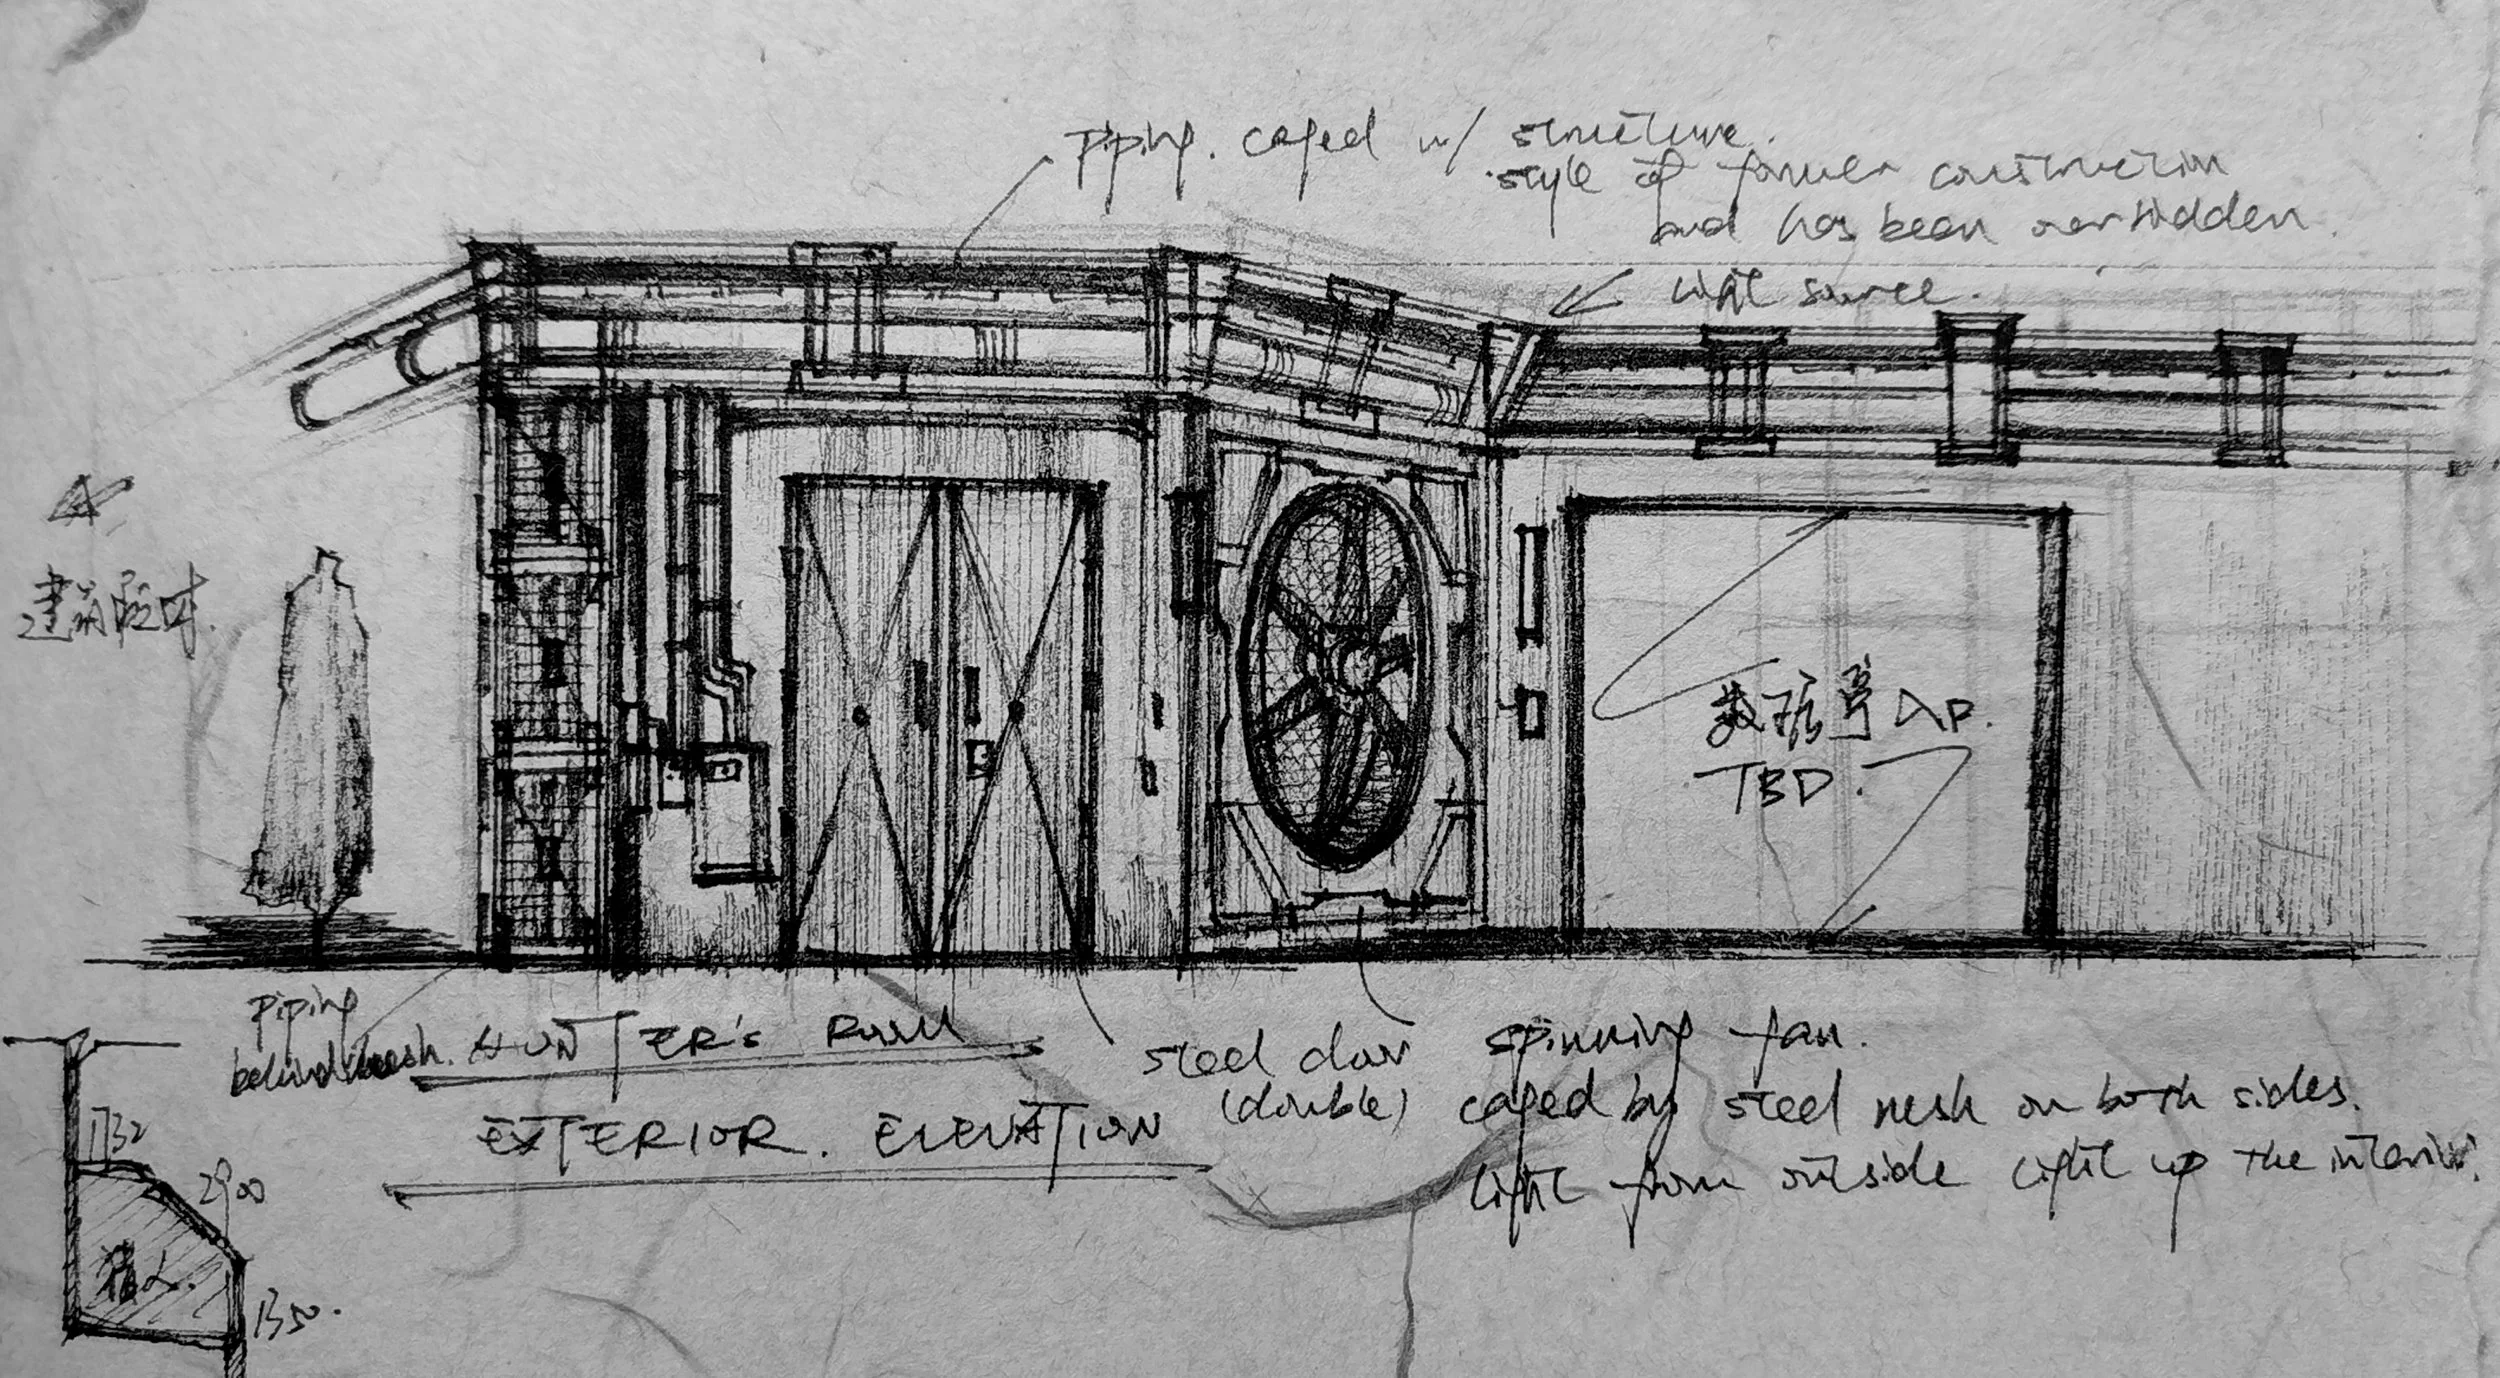 piping. caged w/ structure.
style of former construction
and has been overridden.
light source.
建筑
入口.
TBD.
piping
behind mesh.
HUNTER'S ROOM
EXTERIOR. ELEVATION
steel door
(double)
spinning fan.
caged by steel mesh on both sides.
light from outside light up the interior.
1732
2900
猎人.
1350.